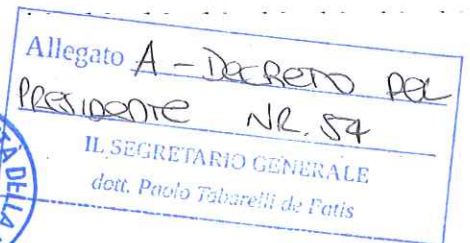 Allegato A - DECRETO DEL
PRESIDENTE NR. 54
IL SEGRETARIO GENERALE
dott. Paolo Tabarelli de Fatis
TÀ DELLA